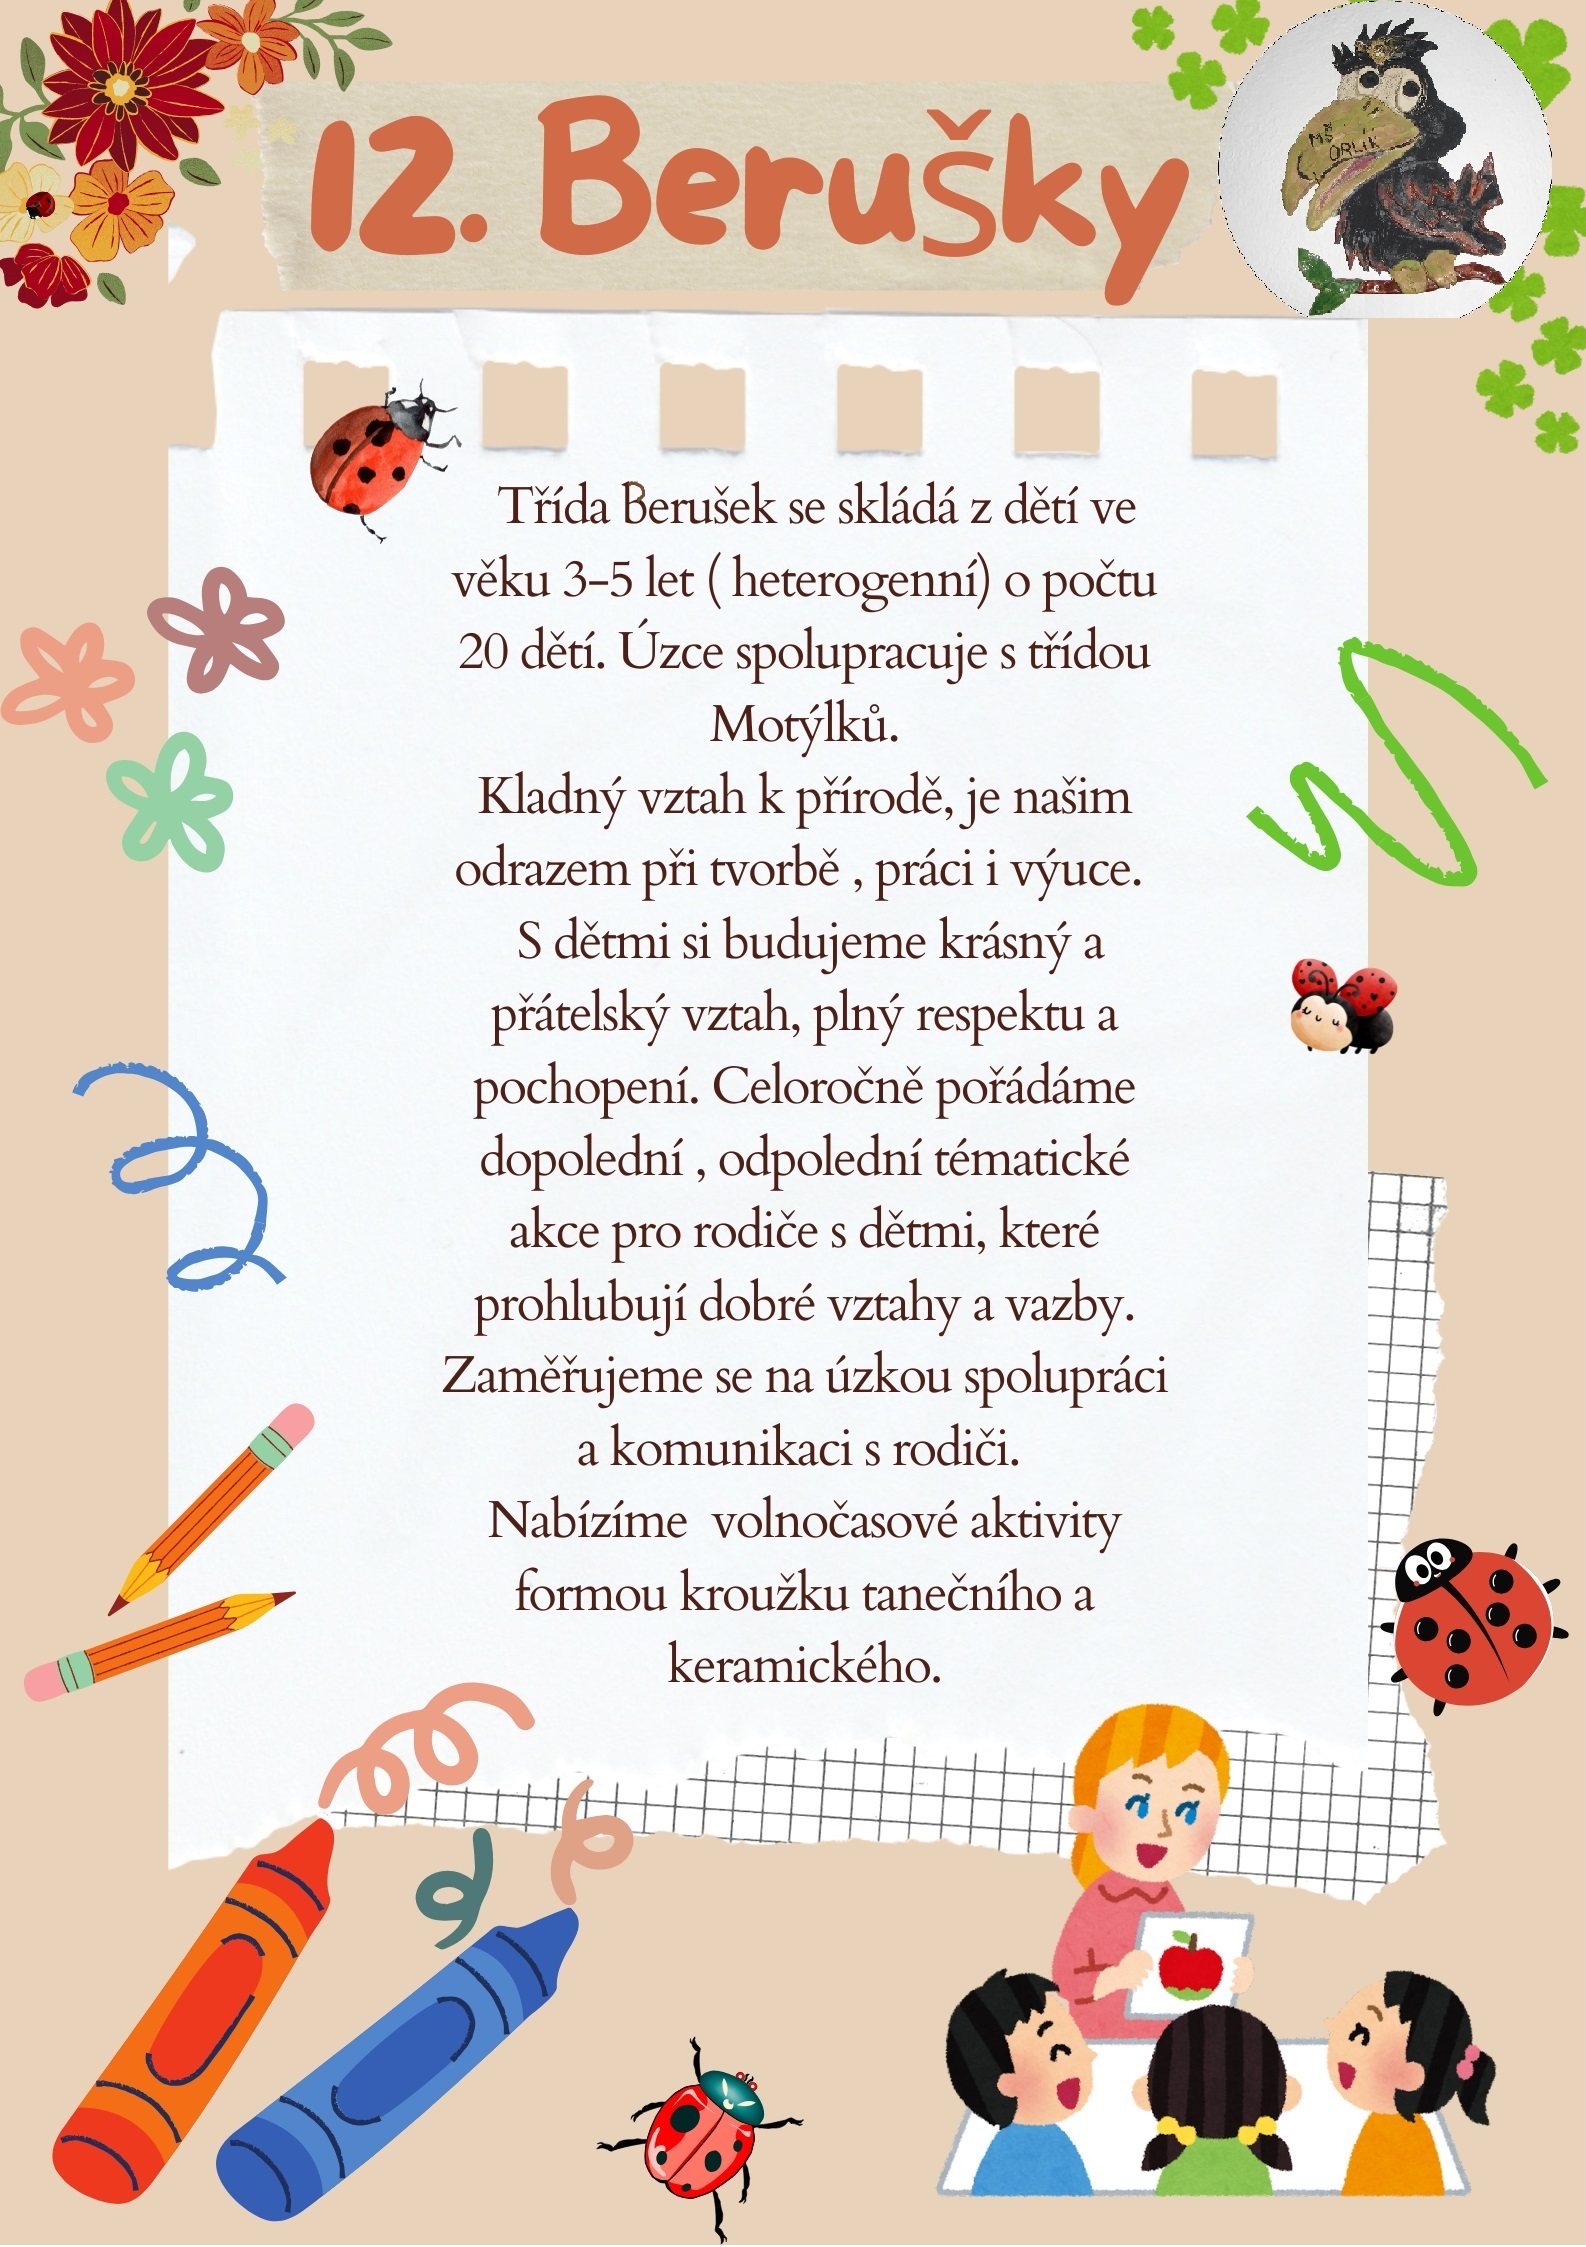 12. Berušky
MŠ
ORLÍK
Třída Berušek se skládá z dětí ve
věku 3-5 let ( heterogenní) o počtu
20 dětí. Úzce spolupracuje s třídou
Motýlků.
Kladný vztah k přírodě, je našim
odrazem při tvorbě , práci i výuce.
S dětmi si budujeme krásný a
přátelský vztah, plný respektu a
pochopení. Celoročně pořádáme
dopolední , odpolední tématické
akce pro rodiče s dětmi, které
prohlubují dobré vztahy a vazby.
Zaměřujeme se na úzkou spolupráci
a komunikaci s rodiči.
Nabízíme  volnočasové aktivity
formou kroužku tanečního a
keramického.